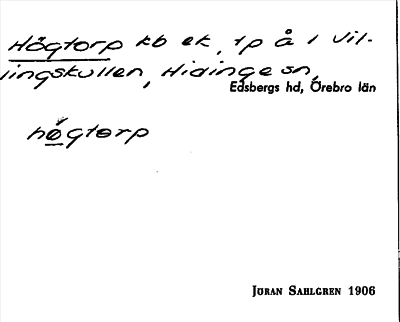 Högtorp kb ek, tp å 1 Vil-
lingskullen, Hidinge sn,
Edsbergs hd, Örebro län
högtorp
Jöran Sahlgren 1906